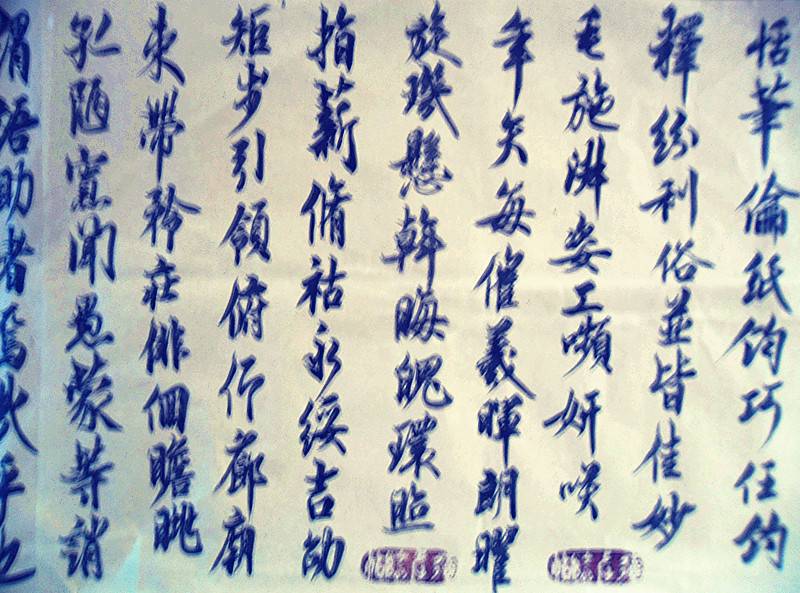 恬筆倫紙鈞巧任釣
釋紛利俗並皆佳妙
毛施淑姿工嚬妍咲
年矢每催羲暉朗曜
旋璣懸斡晦魄環照
指薪脩祜永綏吉劭
矩步引領俯仰廊廟
束帶矜莊徘徊瞻眺
孤陋寡聞愚蒙等誚
謂語助者焉哉乎也